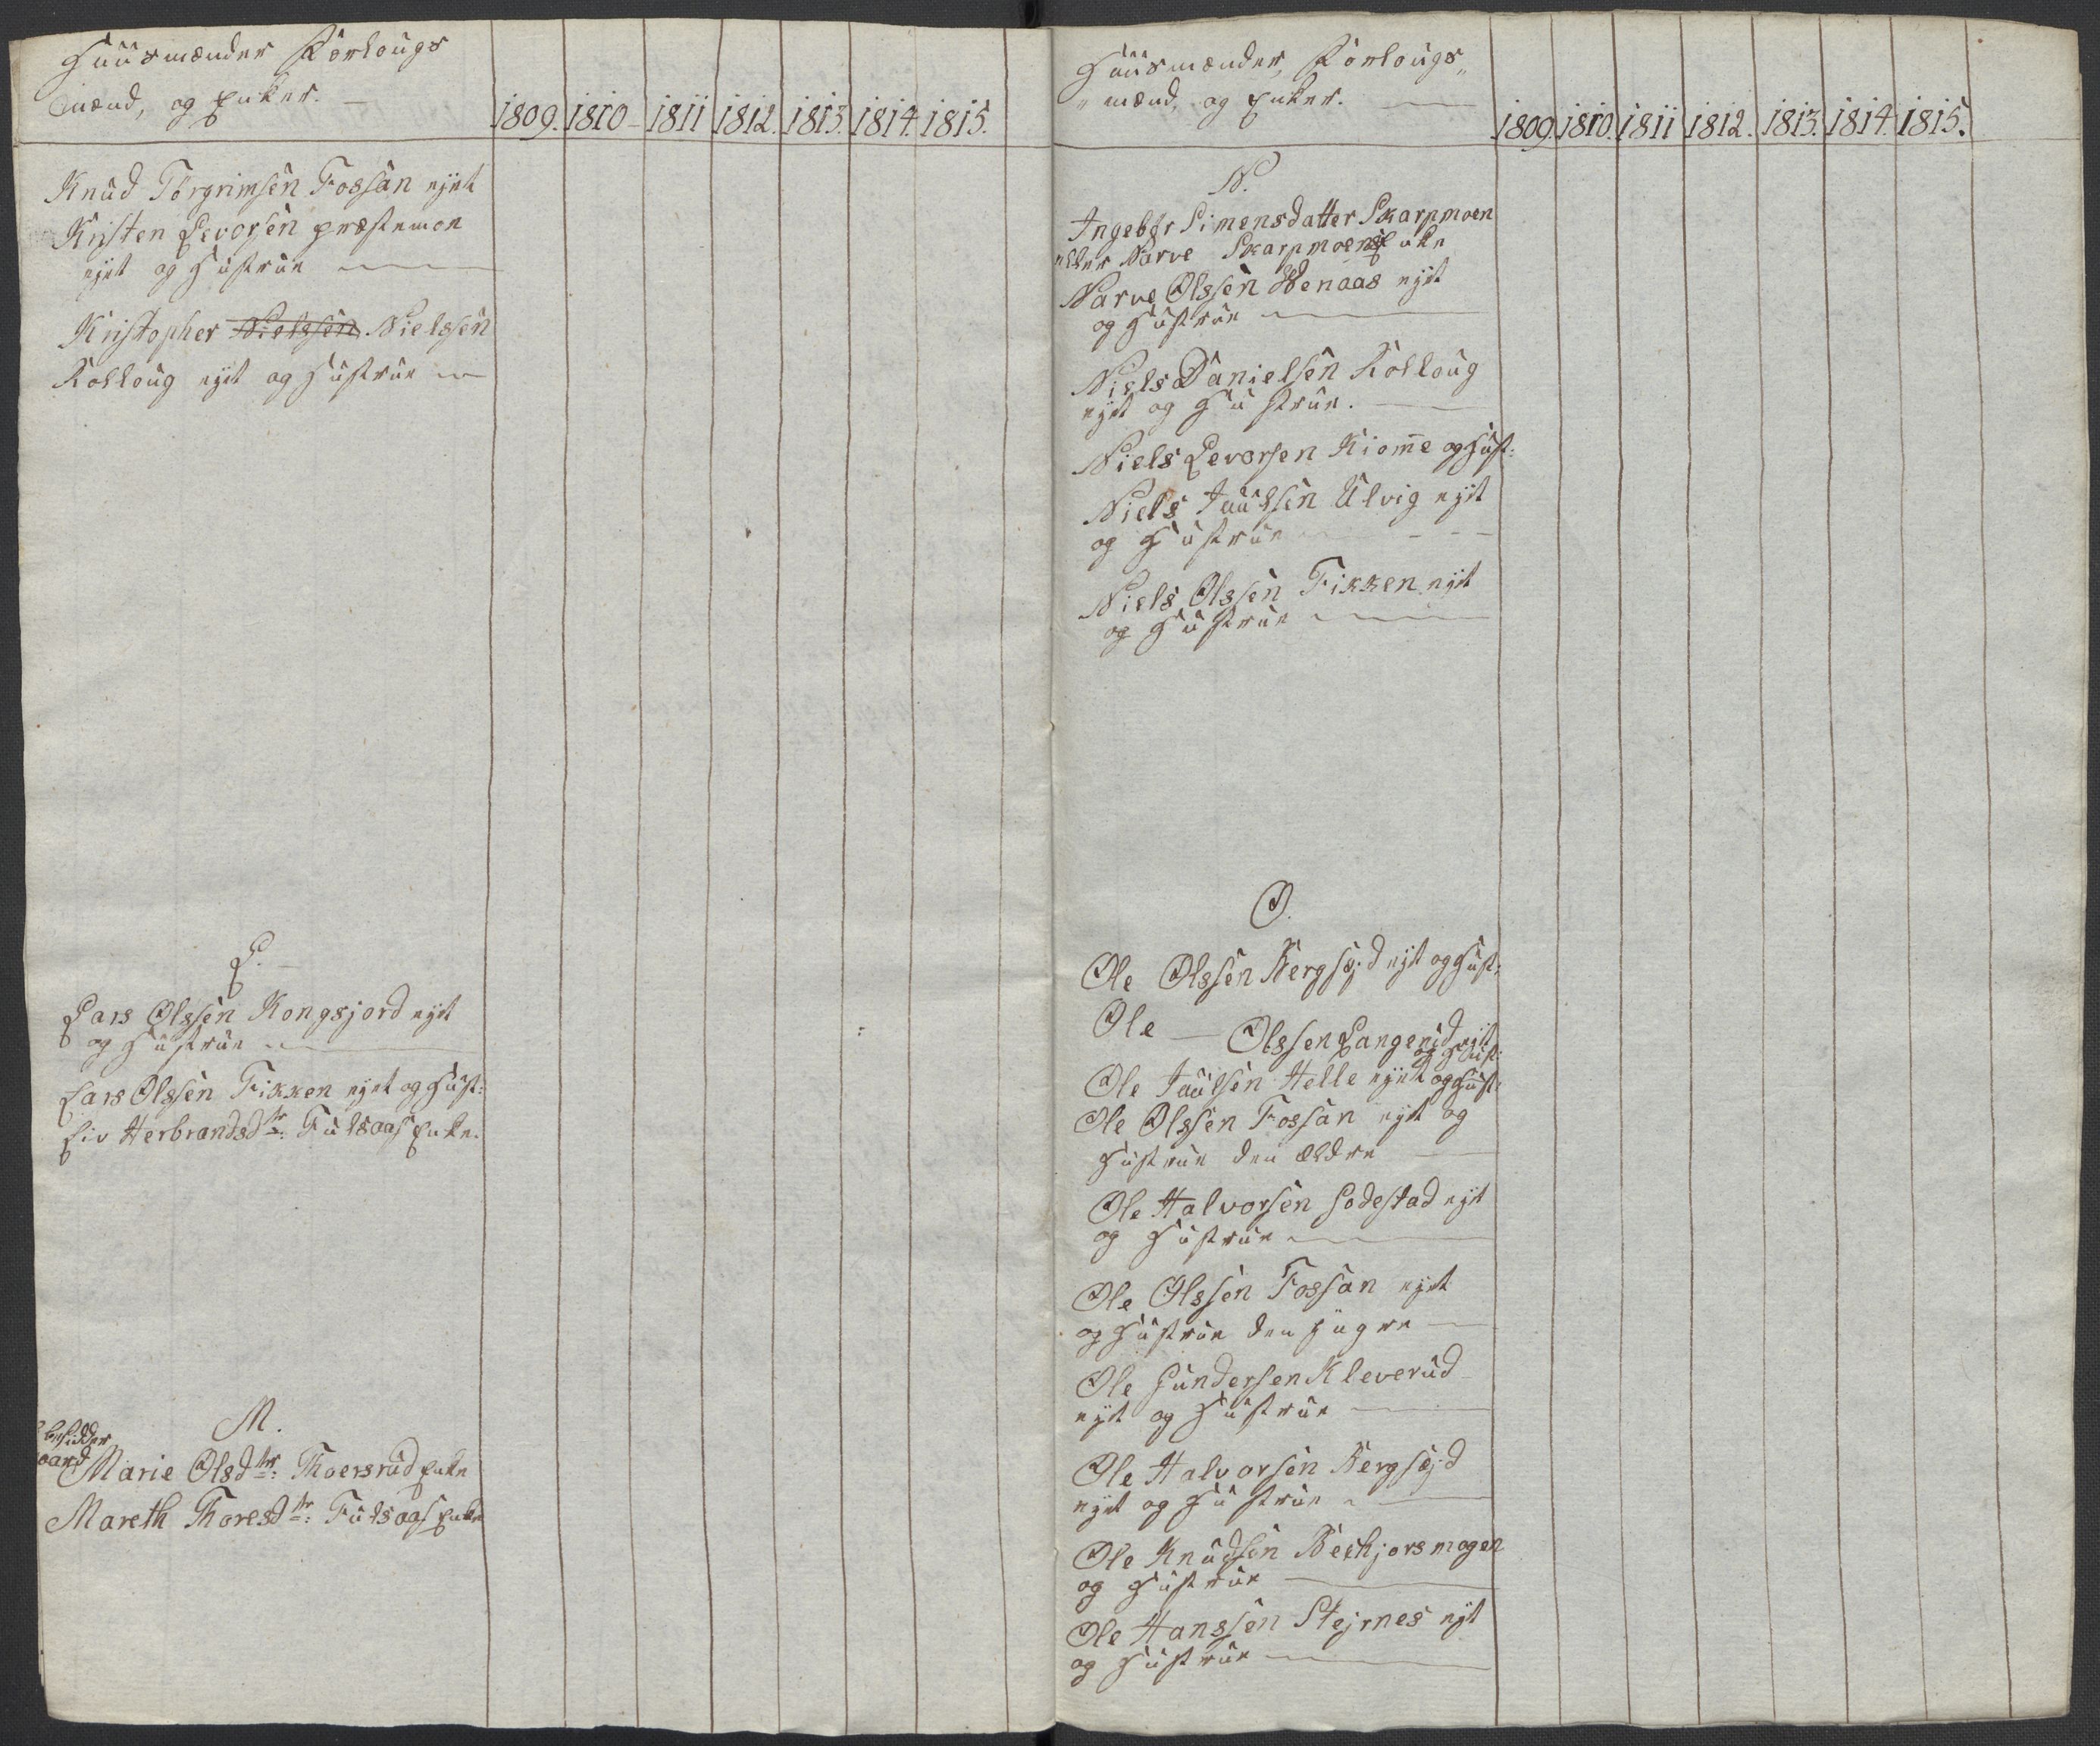 Huusmænder Forlougs
mænd, og Enker.
1809. 1810 1811 1812. 1813. 1814. 1815.
Knud Torgrimsen Fossan eget
Kristen Levorsen præstemoe
eget og Hustrue
Kristopher Nielssen Nielssen
Kolloug eget og Hustrue
L.
Lars Olssen Kongsjord eget
og Hustrue
Lars Olssen Fikken eget og Hust:
Liv Herbrandsdtr: Fulsaas Enke.
M.
Marie Olsdtr: Thoersrud Enke
Mareth Thoresdtr: Fulsaas Enke
Huusmænder, Forlougs„
„mænd, og Enker.
1809. 1810. 1811 1812. 1813. 1814. 1815.
N.
Ingebor Simensdatter Skarpmoen
eller Narve Skarpmoens Enke
Narve Olssen Wenaas eget
og Hustrue
Niels Danielsen Kolloug
eget og Hustrue.
Niels Levorsen Kiom̄e og Hust:
Niels Paulsen Ulvig eget
og Hustrue
Niels Olssen Fikken eget
og Hustrue
O.
Ole Olssen Bergsejd eget og Hust:
Ole — Olssen Langerud eget
og Hust:
Ole Paulsen Helle eget og Hust:
Ole Olssen Fossan eget og
Hustrue den ældre
Ole Halvorsen Sodestad eget
og Hustrue
Ole Olssen Fossan eget
og Hustrue den yngre
Ole Gundersen Kleverud
eget og Hustrue
Ole Halvorsen Bergsejd
eget og Hustrue
Ole Knudsen Beckjorsmogen
og Hustrue
Ole Hanssen Stejrnes eget
og Hustrue